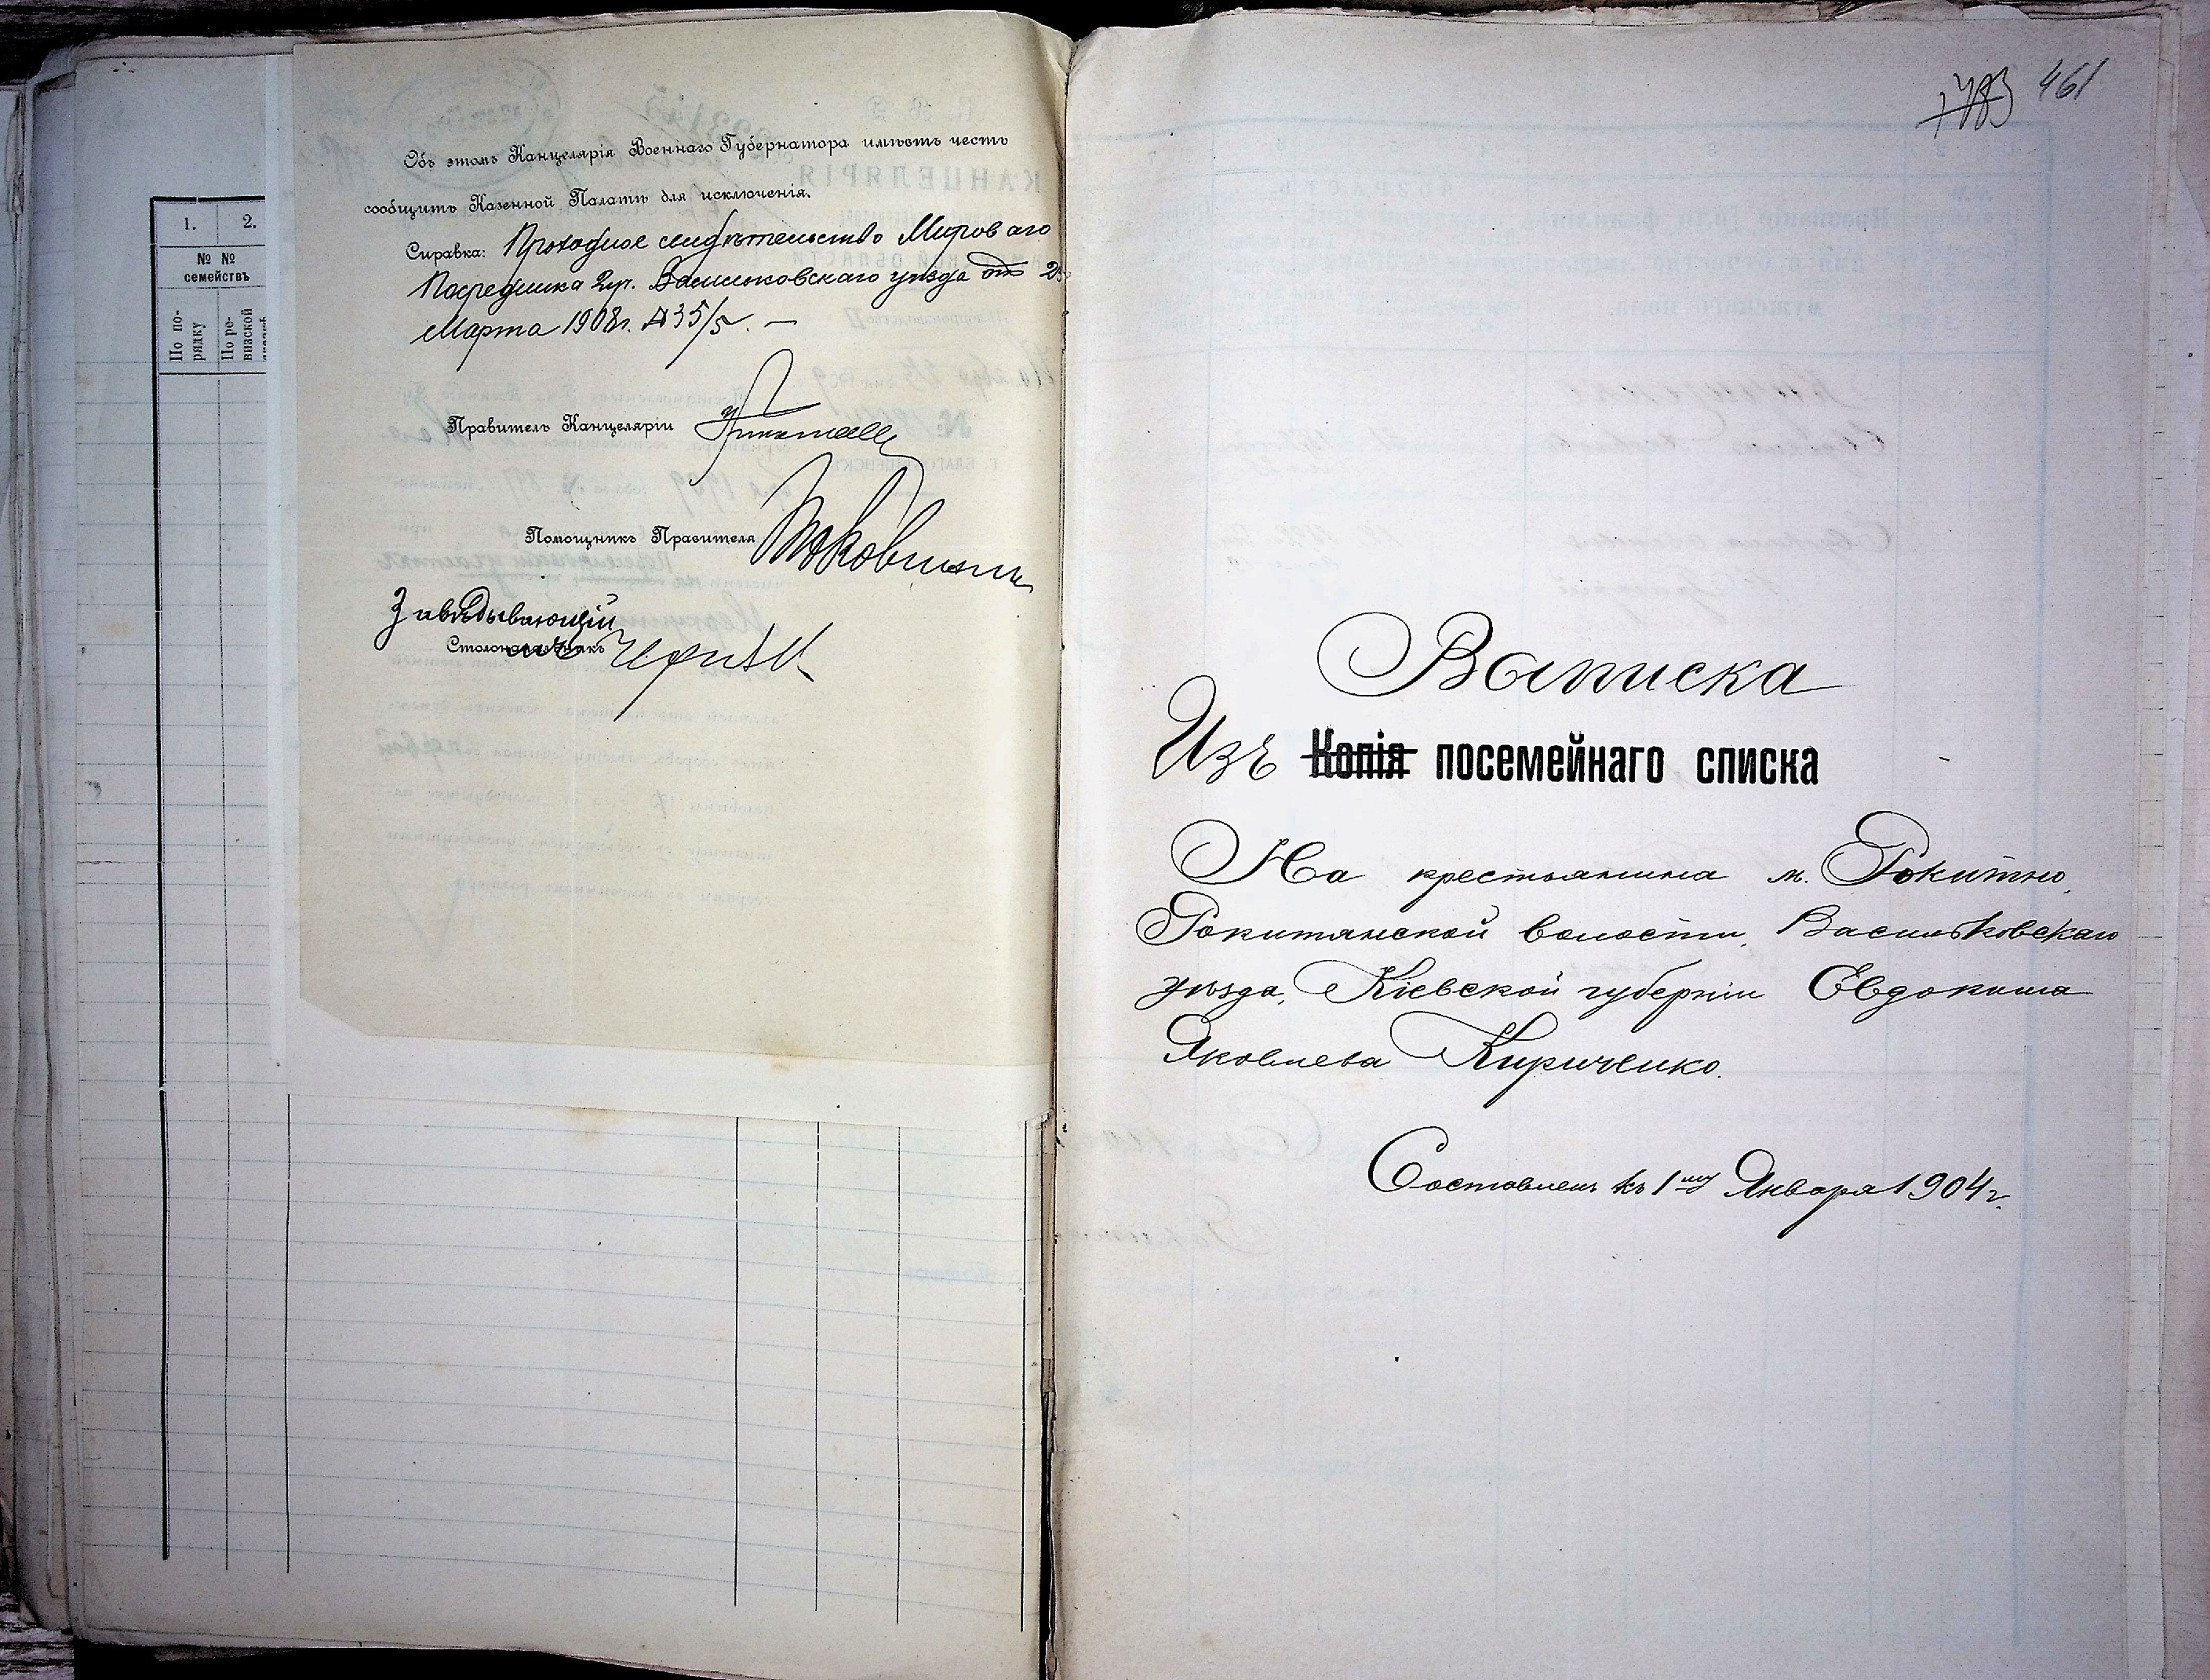 1. 2.
№ № семействъ
По по-
рядку
По ре-
визской
Объ этомъ Канцелярія Военнаго Губернатора имѣетъ честь
сообщить Казенной Палатѣ для исключенія.
Справка: Проходное свидѣтельство Мирового
Посредника 2 уч. Васильковскаго уѣзда отъ
Марта 1908 г. № 35/5. —
Правитель Канцеляріи
Помощникъ Правителя
Завѣдывающій
Столоначальникъ
1783 461
Выписка
Изъ Копія посемейнаго списка
На крестьянина м. Рокитно,
Рокитянской волости, Васильковскаго
уѣзда, Кіевской губерніи Евдокима
Яковлева Кириченко.
Составленъ къ 1му Января 1904 г.